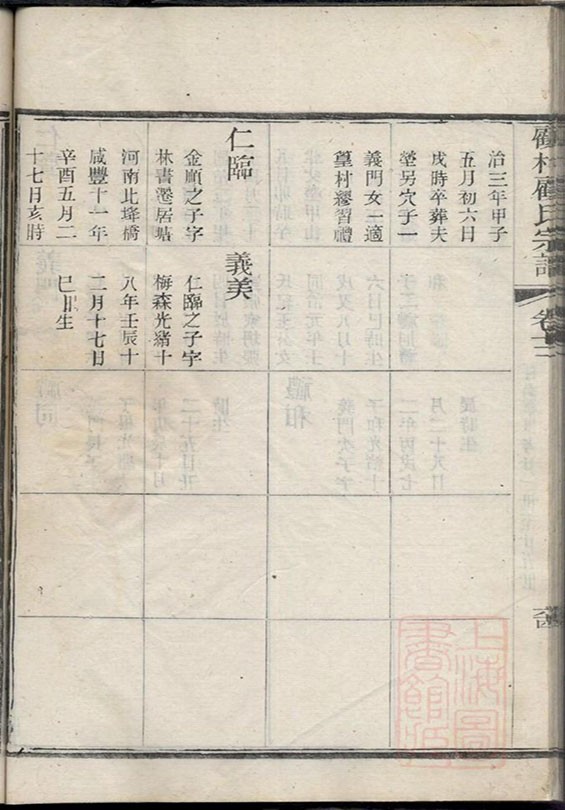 顧氏宗譜
治三年甲子
五月初六日
戌時卒葬夫
塋另穴子一
義門女一適
皇村繆習禮
仁臨
金順之子字
林書遷居塘
河南北埄橋
咸豐十一年
辛酉五月二
十七日亥時
義美
仁臨之子字
梅森光緒十
八年壬辰十
二月十七日
巳時生
上海圖書館藏